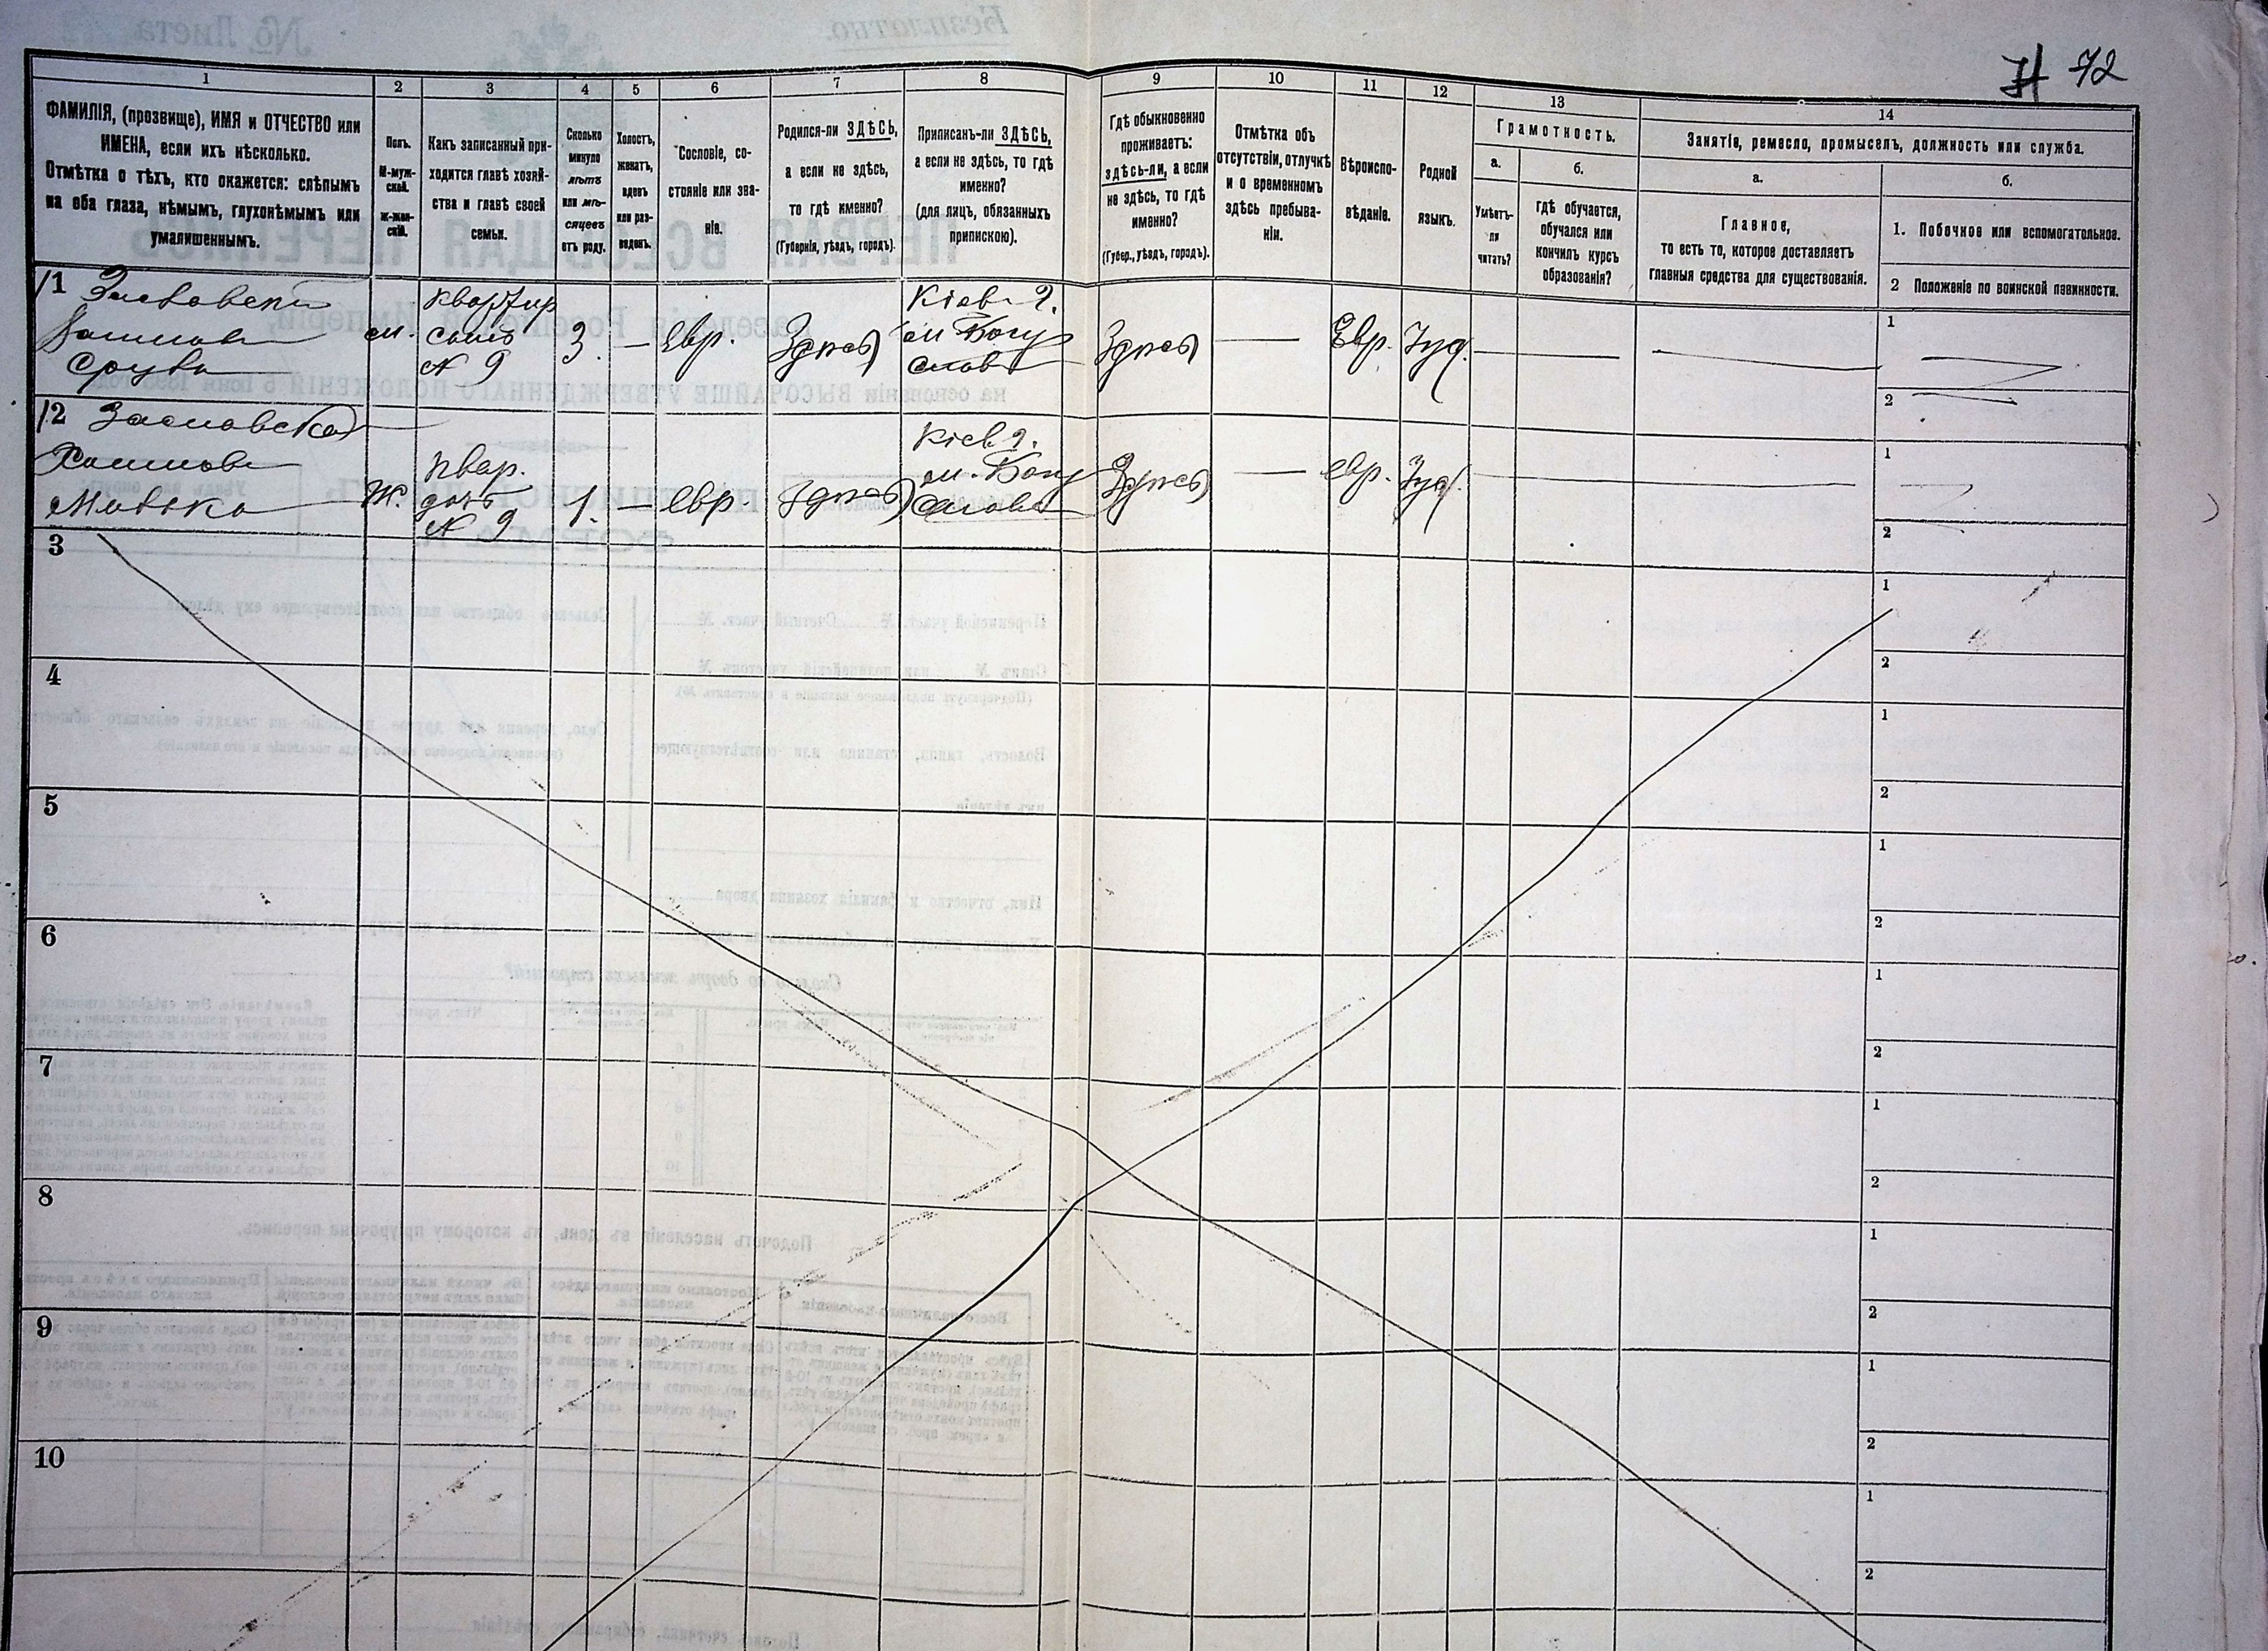 71 72
1 2 3 4 5 6 7 8 9 10 11 12 13 14
ФАМИЛІЯ, (прозвище), ИМЯ и ОТЧЕСТВО или
ИМЕНА, если ихъ нѣсколько.
Отмѣтка о тѣхъ, кто окажется: слѣпымъ
на оба глаза, нѣмымъ, глухонѣмымъ или
умалишеннымъ.
Полъ.
М-муж-
ской.
Ж-жен-
скій.
Какъ записанный при-
ходится главѣ хозяй-
ства и главѣ своей
семьи.
Сколько
минуло
лѣтъ
или мѣ-
сяцевъ
отъ роду.
Холостъ,
женатъ,
вдовъ
или раз-
веденъ.
Сословіе, со-
стояніе или зва-
ніе.
Родился-ли ЗДѢСЬ,
а если не здѣсь,
то гдѣ именно?
(Губернія, уѣздъ, городъ).
Приписанъ-ли ЗДѢСЬ,
а если не здѣсь, то гдѣ
именно?
(для лицъ, обязанныхъ
припискою).
Гдѣ обыкновенно
проживаетъ:
здѣсь-ли, а если
не здѣсь, то гдѣ
именно?
(Губер., уѣздъ, городъ).
Отмѣтка объ
отсутствіи, отлучкѣ
и о временномъ
здѣсь пребыва-
ніи.
Вѣроиспо-
вѣданіе.
Родной
языкъ.
Грамотность.
а.
Умѣетъ-
ли
читать?
б.
гдѣ обучается,
обучался или
кончилъ курсъ
образованія?
Занятіе, ремесло, промыселъ, должность или служба.
а.
Главное,
то есть то, которое доставляетъ
главныя средства для существованія.
б.
1. Побочное или вспомогательное.
2 Положеніе по воинской повинности.
11 Заславскій
Хаимовъ
Срулъ
м.
квартир
сынъ
№ 9
3.
—
Евр.
Здѣсь
Кіев. г.
м. Богу
славъ
Здѣсь
—
Евр.
Іуд.
1
2
12 Заславская
Хаимова
Мовька
Ж.
квар.
дочь
№ 9
1.
—
Евр.
Здѣсь
Кіев г.
м. Богу
славъ
Здѣсь
—
евр.
Іуд.
1
2
3
1
2
4
1
2
5
1
2
6
1
2
7
1
2
8
1
2
9
1
2
10
1
2